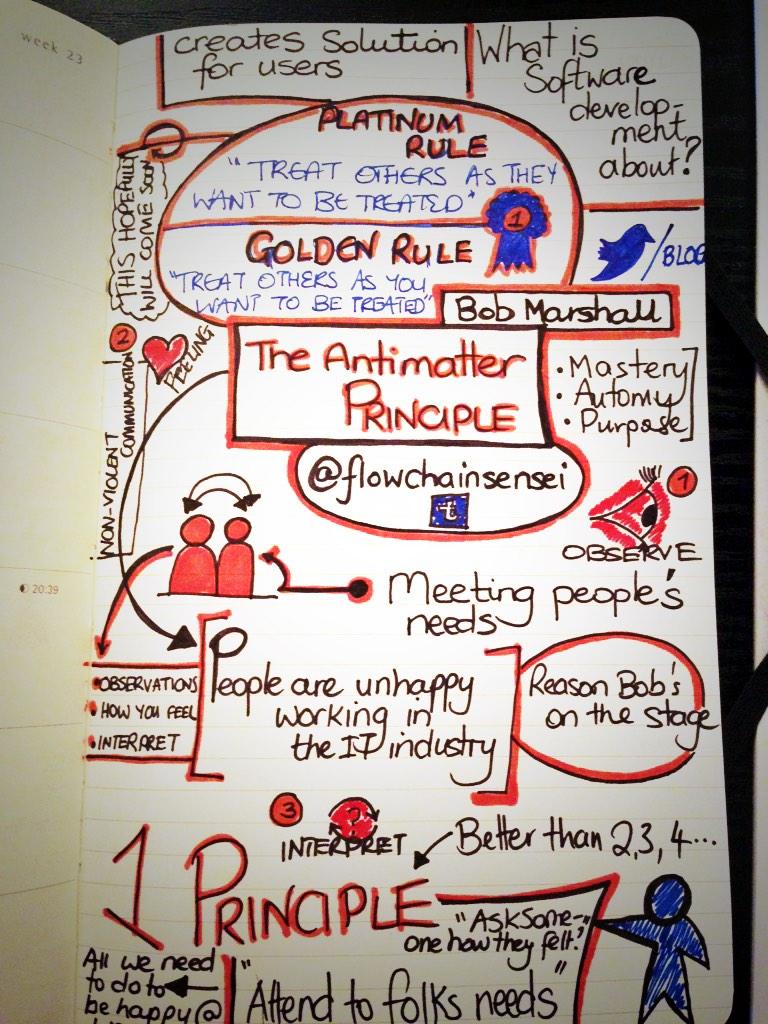 week 23
creates Solution
for users
What is
Software
develop-
ment
about?
PLATINUM
RULE
"TREAT OTHERS AS THEY
WANT TO BE TREATED"
THIS HOPEFULLY
WILL COME SOON
1
GOLDEN RULE
"TREAT OTHERS AS YOU
WANT TO BE TREATED"
/BLOG
Bob Marshall
2
FEELING
NON-VIOLENT
COMMUNICATION
The Antimatter
PRINCIPLE
• Mastery
• Automy
• Purpose
@flowchainsensei
t
1
OBSERVE
Meeting people's
needs
• OBSERVATIONS
• HOW YOU FEEL
• INTERPRET
People are unhappy
working in
the IT industry
Reason Bob's
on the stage
3
?
INTERPRET
Better than 2,3,4...
1 PRINCIPLE
"Ask some-
one how they felt?"
All we need
to do to
be happy @
"Attend to folks needs"